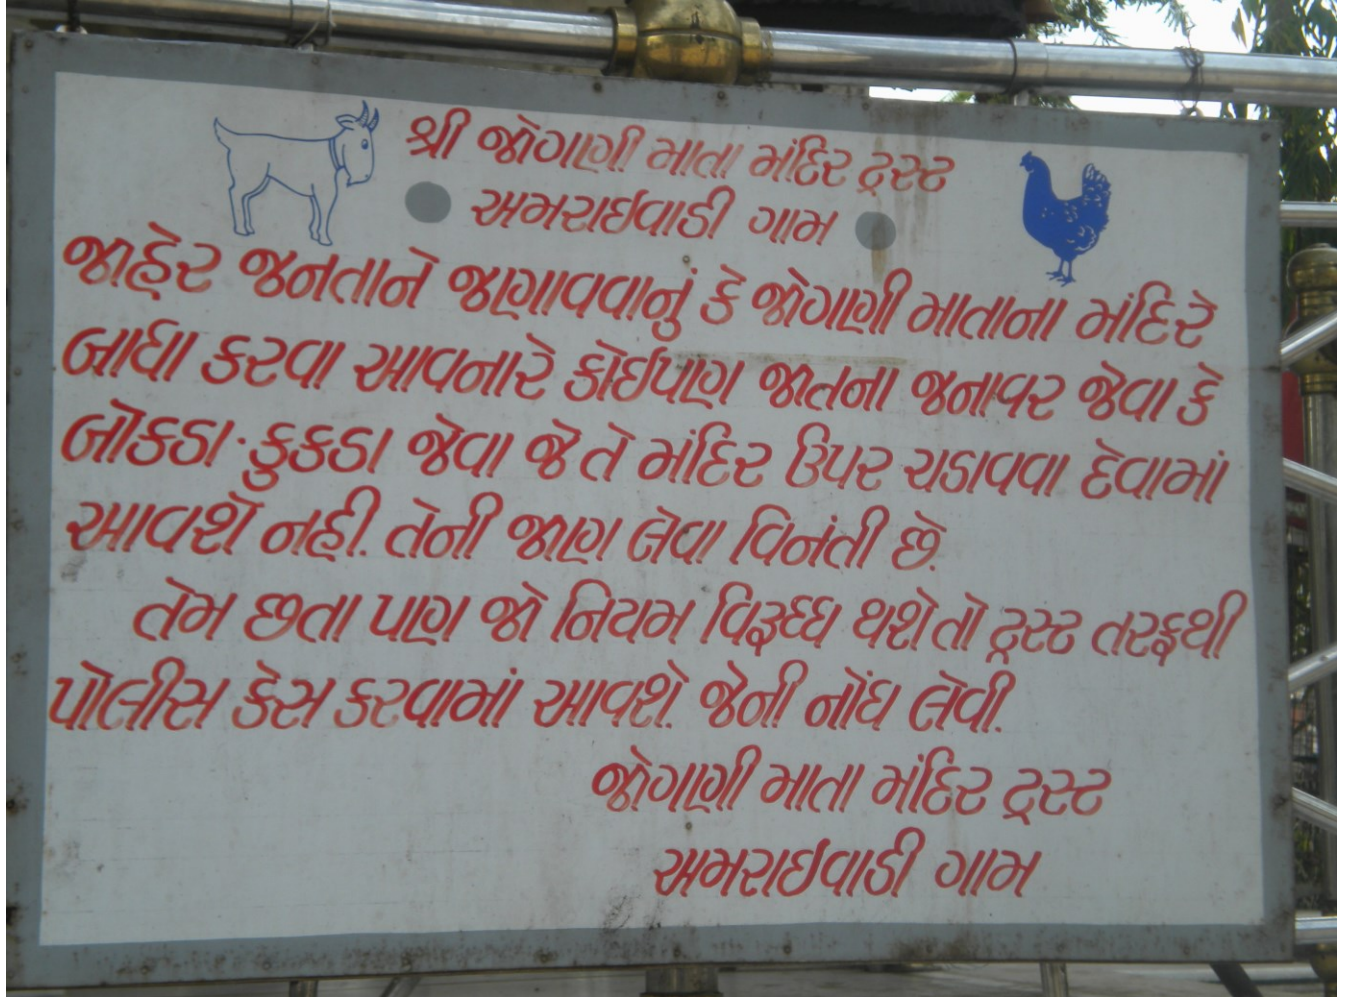 શ્રી જોગણી માતા મંદિર ટ્રસ્ટ
અમરાઇવાડી ગામ
જાહેર જનતાને જણાવવાનું કે જોગણી માતાના મંદિરે
બાધા કરવા આવનારે કોઇપણ જાતના જનાવર જેવા કે
બોકડા. કુકડા જેવા જે તે મંદિર ઉપર ચડાવવા દેવામાં
આવશે નહી. તેની જાણ લેવા વિનંતી છે.
તેમ છતા પણ જો નિયમ વિરૂધ્ધ થશે તો ટ્રસ્ટ તરફથી
પોલીસ કેસ કરવામાં આવશે. જેની નોંધ લેવી.
જોગણી માતા મંદિર ટ્રસ્ટ
અમરાઇવાડી ગામ